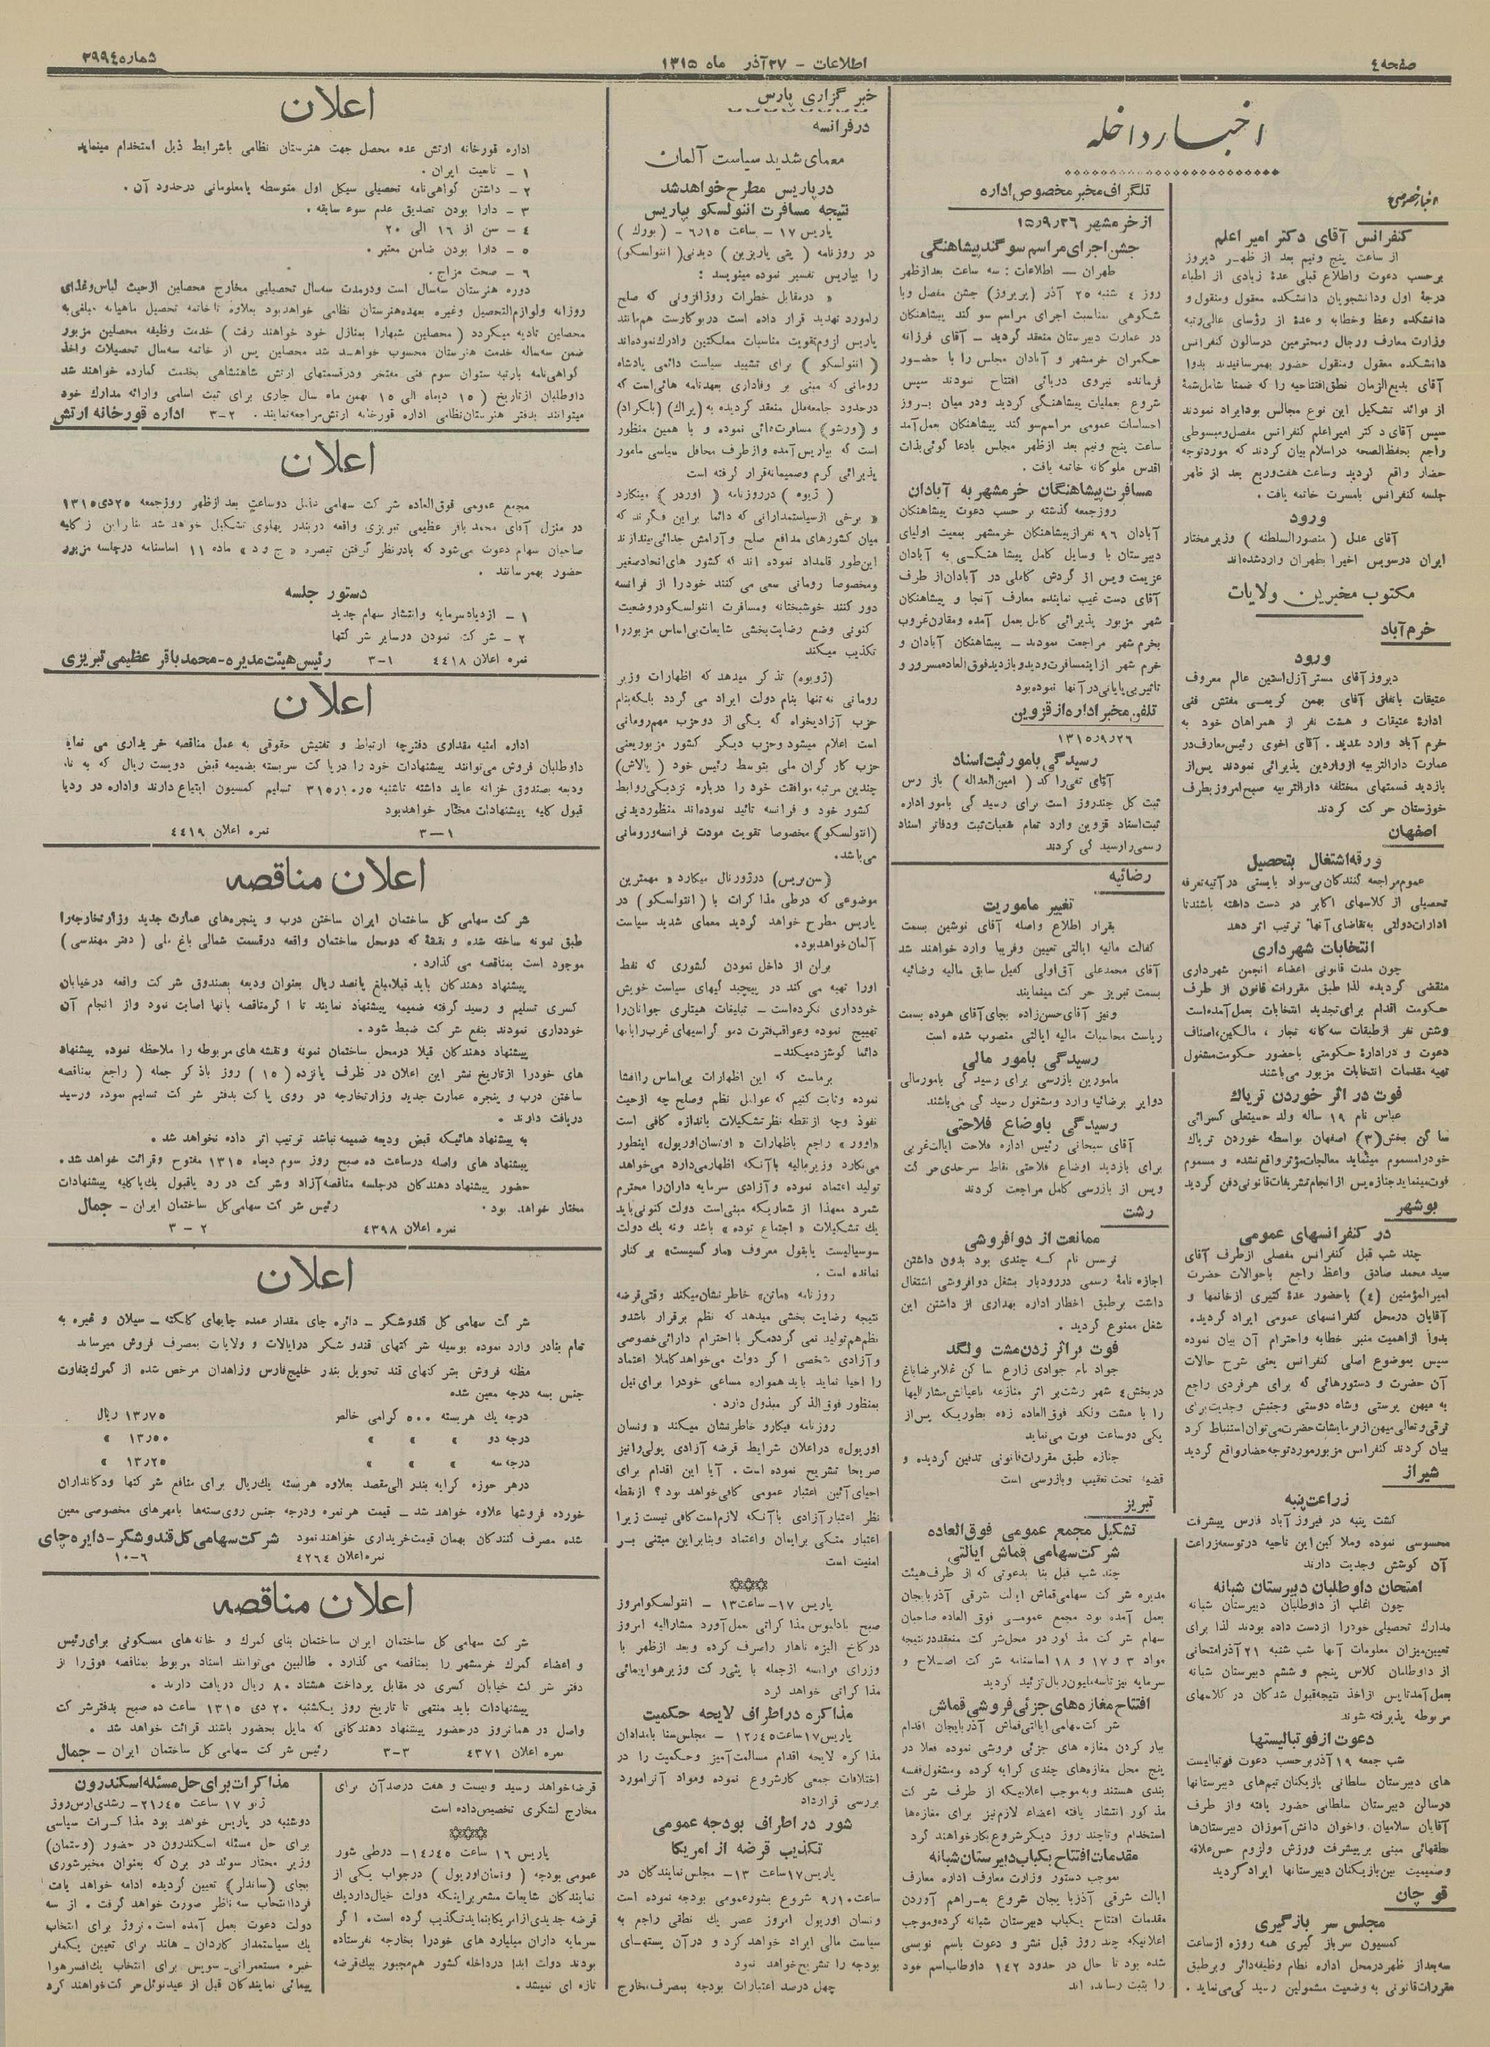 صفحه ٤
اطلاعات - ٢٧ آذر ماه ١٣١٥
شماره ٣٩٩٤
اخبار داخله
اخبار خصوصی
کنفرانس آقای دکتر امیر اعلم
از ساعت پنج ونیم بعد از ظهر دیروز
برحسب دعوت واطلاع قبلی عدهٔ زیادی از اطباء
درجهٔ اول ودانشجویان دانشکده معقول ومنقول و
دانشکده وعظ وخطابه و عدهٔ از رؤسای عالی‌رتبه
وزارت معارف ورجال ومحترمین درسالون کنفرانس
دانشکده معقول ومنقول حضور بهمرسانیدند بدوا
آقای بدیع‌الزمان نطق‌افتتاحیه را که ضمنا شامل‌شمهٔ
از فوائد تشکیل این نوع مجالس بودایراد نمودند
سپس آقای دکتر امیراعلم کنفرانس مفصل‌ومبسوطی
راجع بحفظ‌الصحه دراسلام بیان کردند که موردتوجه
حضار واقع گردید وساعت هفت‌وربع بعد از ظهر
جلسه کنفرانس بامسرت خاتمه یافت.
ورود
آقای عدل ( منصورالسلطنه ) وزیرمختار
ایران درسویس اخیرا بطهران واردشده‌اند
مکتوب مخبرین ولایات
خرم‌آباد
ورود
دیروز آقای مستر آزل‌استین عالم معروف
عتیقات باتفاق آقای بهمن کریمی مفتش فنی
ادارهٔ عتیقات و هشت نفر از همراهان خود به
خرم آباد وارد شدید. آقای اخوی رئیس‌معارف‌در
عمارت دارالتربیه ازواردین پذیرائی نمودند پس‌از
بازدید قسمتهای مختلفه دارالتربیه صبح‌امروز بطرف
خوزستان حرکت کردند
اصفهان
ورقه اشتغال بتحصیل
عموم‌مراجعه کنندگان بی‌سواد بایستی درآتیه‌ورقه
تحصیلی از کلاسهای اکابر در دست داشته باشندتا
ادارات‌دولتی به‌تقاضای آنها ترتیب اثر دهد
انتخابات شهرداری
چون مدت قانونی اعضاء انجمن شهرداری
منقضی گردیده لذا طبق مقررات قانون از طرف
حکومت اقدام برای‌تجدید انتخابات بعمل‌آمده‌است
وشش نفر ازطبقات سه‌گانه تجار، مالکین، اصناف
دعوت و درادارهٔ حکومتی باحضور حکومت‌مشغول
تهیه مقدمات انتخابات مزبور می‌باشند
فوت در اثر خوردن تریاک
عباس نام ١٩ ساله ولد حسینعلی کسرائی
ساکن بخش(٣) اصفهان بواسطه خوردن تریاک
خودرامسموم مینماید معالجات‌مؤثرواقع‌نشده و مسموم
فوت‌مینماید جنازه‌پس ازانجام‌تشریفات‌قانونی‌دفن گردید
بوشهر
در کنفرانسهای عمومی
چند شب قبل کنفرانس مفصلی ازطرف آقای
سید محمد صادق واعظ راجع باحوالات حضرت
امیرالمؤمنین (ع) باحضور عدهٔ کثیری ازخانمها و
آقایان درمحل کنفرانسهای عمومی ایراد گردید.
بدوا ازاهمیت منبر خطابه واحترام آن بیان نموده
سپس بموضوع اصلی کنفرانس یعنی شرح حالات
آن حضرت و دستورهائی که برای هرفردی راجع
به میهن پرستی وشاه دوستی وجنبش وجدیت‌برای
ترقی‌وتعالی میهن ازفرمایشات‌حضرت‌می‌توان‌استنباط کرد
بیان کردند کنفرانس مزبورموردتوجه حضارواقع گردید
شیراز
زراعت پنبه
کشت پنبه در فیروزآباد فارس پیشرفت
محسوسی نموده وملاکین‌این ناحیه درتوسعه‌زراعت
آن کوشش وجدیت دارند
امتحان داوطلبان دبیرستان شبانه
چون اغلب از داوطلبان دبیرستان شبانه
مدارک تحصیلی خودرا ازدست داده بودند لذا برای
تعیین‌میزان معلومات آنها شب شنبه ٢١ آذرامتحانی
از داوطلبان کلاس پنجم و ششم دبیرستان شبانه
بعمل‌آمدتاپس ازاخذ نتیجه‌قبول شدگان در کلاسهای
مربوطه پذیرفته شوند
دعوت ازفوتبالیستها
شب جمعه ١٩ آذربرحسب دعوت فوتبالیست
های دبیرستان سلطانی بازیکنان تیم‌های دبیرستانها
درسالن دبیرستان سلطانی حضور یافته وازطرف
آقایان سلامیان واخوان دانش‌آموزان دبیرستان‌ها
نطقهائی مبنی برپیشرفت ورزش ولزوم حس‌علاقه
وصمیمیت بین‌بازیکنان دبیرستانها ایراد گردید
قوچان
مجلس سرباز گیری
کمسیون سرباز گیری همه روزه ازساعت
سه‌بعداز ظهردرمحل اداره نظام وظیفه‌دائر وبرطبق
مقررات‌قانونی به وضعیت مشمولین رسیدگی‌می‌نماید.
تلگراف مخبر مخصوص اداره
از خرمشهر ١٥/٩/٢٦
جشن اجرای مراسم سوگند پیشاهنگی
طهران — اطلاعات: سه ساعت بعدازظهر
روز ٤ شنبه ٢٥ آذر (پریروز) جشن مفصل وبا
شکوهی بمناسبت اجرای مراسم سوگند پیشاهنگان
در عمارت دبیرستان منعقد گردید — آقای فرزانه
حکمران خرمشهر و آبادان مجلس را با حضور
فرمانده نیروی دریائی افتتاح نمودند سپس
شروع بعملیات پیشاهنگی گردید ودر میان بروز
احساسات عمومی مراسم‌سوگند پیشاهنگان بعمل‌آمد
ساعت پنج ونیم بعد ازظهر مجلس بادعاگوئی‌بذات
اقدس ملوکانه خاتمه یافت.
مسافرت‌پیشاهنگان خرمشهر به آبادان
روزجمعه گذشته بر حسب دعوت پیشاهنگان
آبادان ٩٦ نفرازپیشاهنگان خرمشهر بمعیت اولیای
دبیرستان با وسایل کامل پیشاهنگی به آبادان
عزیمت وپس از گردش کاملی در آبادان‌از طرف
آقای دست غیب نماینده معارف آنجا و پیشاهنگان
شهر مزبور پذیرائی کامل‌بعمل آمده ومقارن‌غروب
بخرم شهر مراجعت نمودند — پیشاهنگان آبادان و
خرم شهر ازاینمسافرت‌ودیدوبازدیدفوق‌العاده‌مسرور و
تأثیربی‌پایانی‌درآنها نموده‌بود
تلفن مخبر اداره از قزوین
١٣١٥/٩/٢٦
رسیدگی بامور ثبت اسناد
ثبت کل چندروز است برای رسیدگی بامور اداره
ثبت‌اسناد قزوین وارد تمام شعبات‌ثبت ودفاتر اسناد
رسمی‌رارسیدگی کردند
رضائیه
تغییر ماموریت
بقرار اطلاع واصله آقای نوشین بسمت
کفالت مالیه ایالتی تعیین وقریبا وارد خواهند شد
آقای محمدعلی آق‌اولی کفیل سابق مالیه رضائیه
بسمت تبریز حرکت مینمایند
ونیز آقای‌حسن‌زاده بجای‌آقای هوده بسمت
ریاست محاسبات مالیه ایالتی منصوب شده است
رسیدگی بامور مالی
مامورین بازرسی برای رسیدگی بامورمالی
دوایر برضائیه وارد ومشغول رسیدگی می‌باشند
رسیدگی باوضاع فلاحتی
آقای سبحانی رئیس اداره فلاحت ایالت‌غربی
برای بازدید اوضاع فلاحتی نقاط سرحدی‌حرکت
وپس از بازرسی کامل مراجعت کردند
رشت
ممانعت از دوافروشی
نرسس نام که چندی بود بدون داشتن
اجازه نامهٔ رسمی دررودبار بشغل دوافروشی اشتغال
داشت برطبق اخطار اداره بهداری از داشتن این
شغل ممنوع گردید.
فوت براثر زدن مشت ولگد
جواد نام جوادی زارع ساکن غلامرضاباغ
دربخش٤ شهر رشت‌بر اثر منازعه باعیالش مشارالیها
را با مشت ولگد فوق‌العاده زده بطوریکه پس‌از
یکی دوساعت فوت می‌نماید
جنازه طبق مقررات‌قانونی تدفین گردیده و
قضیه تحت تعقیب وبازرسی است
تبریز
تشکیل مجمع عمومی فوق‌العاده
شرکت سهامی قماش ایالتی
چند شب قبل بنا بدعوتی که از طرف‌هیئت
مدیره شرکت سهامی‌قماش ایالت شرقی آذربایجان
بعمل آمده بود مجمع عمومی فوق العاده صاحبان
سهام شرکت مذکور در محل‌شرکت منعقددرنتیجه
مواد ٣ و ١٧ و ١٨ اساسنامه شرکت اصلاح و
سرمایه نیزتاسه‌ملیون‌ریال‌تزئید گردید
افتتاح مغازه‌های جزئی فروشی قماش
شرکت‌سهامی ایالتی‌قماش آذربایجان اقدام
بباز کردن مغازه های جزئی فروشی نموده فعلا در
پنج محل مغازه‌های چندی کرایه کرده ومشغول‌قفسه
بندی هستند وبه‌موجب اعلامیکه از طرف شرکت
مذکور انتشار یافته اعضاء لازم‌نیز برای مغازه‌ها
استخدام وتاچند روز دیگرشروع بکارخواهند کرد
مقدمات افتتاح یکباب دبیرستان شبانه
بموجب دستور وزارت معارف اداره معارف
ایالت شرقی آذربایجان شروع بفراهم آوردن
مقدمات افتتاح یکباب دبیرستان شبانه کرده‌وموجب
اعلانیکه چند روز قبل نشر و دعوت باسم نویسی
شده بود تا حال در حدود ١٤٢ داوطلب‌اسم خود
را بثبت رسانده اند
خبر گزاری پارس
درفرانسه
معمای شدید سیاست آلمان
درپاریس مطرح خواهد شد
نتیجه مسافرت انتولسکو بپاریس
پاریس ١٧ - ساعت ٦/١٥ - ( بورک )
در روزنامه ( پتی پاریزین ) دیدنی ( انتولسکو)
را بپاریس تفسیر نموده مینویسد:
« درمقابل خطرات روزافزونی که صلح
پاریس لزوم‌تقویت مناسبات مملکتین وادرک‌نموده‌اند
( انتولسکو ) برای تشیید سیاست دائمی پادشاه
رومانی که مبنی بر وفاداری بعهدنامه هائی‌است که
درحدود جامعه‌ملل منعقد گردیده به (پراک) (بلگراد)
و (ورشو) مسافرت‌هائی نموده و با همین منظور
است که بپاریس‌آمده وازطرف محافل سیاسی مامور
پذیرائی گرم وصمیمانه‌قرار گرفته است
( ژیوه ) درروزنامه ( اوردر ) مینگارد
« برخی ازسیاستمدارانی که دائما براین فکرند که
میان کشورهای مدافع صلح و آرامش جدائی‌بیندازند
این‌طور قلمداد نموده اند که کشور های‌اتحادصغیر
ومخصوصا رومانی سعی می کنند خودرا از فرانسه
دور کنند خوشبختانه ومسافرت انتولسکودروضعیت
کنونی وضع رضایت‌بخشی شایعات‌بی‌اساس مزبوررا
تکذیب میکند
(ژویوه) تذکر میدهد که اظهارات وزیر
رومانی نه‌تنها بنام دولت ایراد می گردد بلکه‌بنام
حزب آزادیخواه که یکی از دوحزب مهم‌رومانی
است اعلام میشود وحزب دیگر کشور مزبوریعنی
حزب کارگران ملی بتوسط رئیس خود (بالاش)
چندین مرتبه‌موافقت خودرا درباره نزدیکی‌روابط
کشور خود و فرانسه تائید نموده‌اند منظوردیدنی
(انتولسکو) مخصوصا تقویت مودت فرانسه‌ورومانی
می‌باشد.
(سن‌بریس) درژورنال میگارد « مهمترین
موضوعی که درطی مذاکرات با ( انتولسکو ) در
پاریس مطرح خواهد گردید معمای شدید سیاست
آلمان‌خواهدبود.
برلن از داخل نمودن کشوری که نفط
اورا تهیه می کند در پیچید گیهای سیاست خویش
خودداری نکرده‌است — تبلیغات هیتلری جوانان‌را
تهییج نموده وعواقب‌فترت دموکراسیهای غرب‌رابانها
دائما گوشزدمیکند—
برماست که این اظهارات بی‌اساس راافشا
نموده وثابت کنیم که عوامل نظم وصلح چه ازحیث
نفوذ وچه ازنقطه نظرتشکیلات باندازه کافی است
«اوور» راجع باظهارات « اونسان‌اوریول» اینطور
می‌نگارد وزیرمالیه باآنکه اظهارمی‌دارد می‌خواهد
تولید اعتماد نموده و آزادی سرمایه داران‌را محترم
شمرد معهذا از شعاریکه مبنی‌است دولت کنونی‌باید
یک تشکیلات « اجتماع توده » باشد ونه یک دولت
سوسیالیست یابقول معروف «مارکسیست» بر کنار
نمانده است.
روزنامه «ماتن» خاطرنشان‌میکند وقتی‌قرضه
نتیجه رضایت بخشی میدهد که نظم برقرار باشدو
نظم‌هم‌تولید نمی گرددمگر با احترام دارائی‌خصوصی
و آزادی شخصی اگر دولت می‌خواهدکاملا اعتماد
را احیا نماید باید همواره مساعی خودرا برای‌نیل
بمنظور فوق‌الذکر مبذول دارد.
روزنامه فیگارو خاطرنشان میکند « ونسان
اوریول» دراعلان شرایط قرضه آزادی پولی‌رانیز
صریحا تشریح نموده است. آیا این اقدام برای
احیای‌آئین اعتبار عمومی کافی‌خواهد بود؟ ازنقطه
نظر اعتبارآزادی باآنکه لازم‌است‌کافی نیست زیرا
اعتبار متکی برایمان واعتماد وبنابراین مبتنی بر
امنیت است
پاریس ١٧- ساعت ١٣ - انتولسکوامروز
صبح بادلبوس مذاکراتی بعمل‌آورد مشارالیه امروز
درکاخ الیزه ناهار راصرف کرده وبعد ازظهر با
وزرای فرانسه ازجمله با پی‌یرکت وزیرهواپیمائی
مذاکراتی خواهد کرد
مذاکره دراطراف لایحه حکمیت
پاریس١٧ ساعت ١٢/٤٥ - مجلس‌سنا بامدادان
مذاکره لایحه اقدام مسالمت‌آمیز وحکمیت را در
اختلافات جمعی کارشروع نموده ومواد آنرامورد
بررسی قرارداد
شور در اطراف بودجه عمومی
تکذیب قرضه از امریکا
پاریس١٧ساعت ١٣- مجلس‌نمایندگان در
ساعت٩/١٠ شروع بشورعمومی بودجه نموده است
ونسان اوریول امروز عصر یک نطقی راجع به
سیاست مالی ایراد خواهد کرد و درآن پستهای
بودجه را تشریح‌خواهد نمود
چهل درصد اعتبارات بودجه بمصرف‌مخارج
اعلان
اداره قورخانه ارتش عده محصل جهت هنرستان نظامی باشرایط ذیل استخدام مینماید
١ - تابعیت ایران.
٢ - داشتن گواهی‌نامه تحصیلی سیکل اول متوسطه یامعلوماتی درحدود آن.
٣ - دارا بودن تصدیق عدم سوء سابقه.
٤ - سن از ١٦ الی ٢٠
٥ - دارا بودن ضامن معتبر.
٦ - صحت مزاج.
دوره هنرستان سه‌سال است ودرمدت سه‌سال تحصیلی مخارج محصلین ازحیث لباس‌وغذای
روزانه ولوازم‌التحصیل وغیره بعهده‌هنرستان نظامی خواهدبود بعلاوه تاخاتمه تحصیل ماهیانه مبلغی‌به
محصلین تادیه میگردد (محصلین شبهارا بمنازل خود خواهند رفت) خدمت وظیفه محصلین مزبور
ضمن سه‌ساله خدمت هنرستان محسوب خواهد شد محصلین پس از خاتمه سه‌سال تحصیلات واخذ
گواهی‌نامه بارتبه ستوان سوم فنی مفتخر ودرقسمتهای ارتش شاهنشاهی بخدمت گمارده خواهند شد
داوطلبان ازتاریخ (١٥ دیماه الی ١٥ بهمن ماه سال جاری برای ثبت اسامی وارائه مدارک خود
میتوانند بدفتر هنرستان‌نظامی اداره قورخانه ارتش‌مراجعه‌نمایند. ٢-٣ اداره قورخانه ارتش
اعلان
مجمع عمومی فوق‌العاده شرکت سهامی دوساعت بعد ازظهر روزجمعه ٢٥دی١٣١٥
در منزل آقای محمد باقر عظیمی تبریزی واقعه دربندر پهلوی تشکیل خواهد شد بنابراین از کلیه
صاحبان سهام دعوت می‌شود که بادرنظر گرفتن تبصره «ج و د» ماده ١١ اساسنامه درجلسه مزبور
حضور بهمرسانند.
دستور جلسه
١ - ازدیادسرمایه وانتشار سهام جدید
٢ - شرکت نمودن درسایر شرکتها
نمره اعلان ٤٤١٨ ١-٣ رئیس هیئت مدیره - محمد باقر عظیمی تبریزی
اعلان
اداره امنیه مقداری دفترچه ارتباط و تفتیش حقوقی به عمل مناقصه خریداری می نماید
داوطلبان فروش می‌توانند پیشنهادات خود را درپاکت سربسته بضمیمه قبض دویست ریال که به
ودیعه بصندوق خزانه عاید داشته تاشنبه ٣١٥/١٠/٥ تسلیم کمسیون ابتیاع دارند واداره در ردیا
قبول کلیه پیشنهادات مختار خواهدبود
١—٣ نمره اعلان ٤٤١٩
اعلان مناقصه
شرکت سهامی کل ساختمان ایران ساختن درب و پنجره‌های عمارت جدید وزارتخارجه‌را
طبق نمونه ساخته شده و نقشهٔ که دومحل ساختمان واقعه درقسمت شمالی باغ ملی (دفتر مهندسی)
موجود است بمناقصه می گذارد.
پیشنهاد دهندگان باید قبلامبلغ پانصد ریال بعنوان ودیعه بصندوق شرکت واقعه درخیابان
کسری تسلیم و رسید گرفته ضمیمه پیشنهاد نمایند تا اگرمناقصه بانها اصابت نمود واز انجام آن
خودداری نمودند بنفع شرکت ضبط شود.
پیشنهاد دهندگان قبلا درمحل ساختمان نمونه ونقشه های مربوطه را ملاحظه نموده پیشنهاد
های خودرا ازتاریخ نشر این اعلان در ظرف پانزده (١٥) روز باذکر جمله (راجع بمناقصه
ساختن درب و پنجره عمارت جدید وزارتخارجه در روی پاکت بدفتر شرکت تسلیم نموده ورسید
دریافت دارند.
به پیشنهاد هائیکه قبض ودیعه ضمیمه نباشد ترتیب اثر داده نخواهد شد.
پیشنهاد های واصله درساعت ده صبح روز سوم دیماه ١٣١٥ مفتوح وقرائت خواهد شد.
حضور پیشنهاد دهندگان درجلسه مناقصه‌آزاد وشرکت در رد یاقبول یک‌یاکلیه پیشنهادات
مختار خواهد بود. رئیس شرکت سهامی‌کل ساختمان ایران - جمال
نمره اعلان ٤٣٩٨ ٢ - ٣
اعلان
شرکت سهامی کل قندوشکر - دائره چای مقدار عمده چایهای کلکته - سیلان و غیره به
تمام بنادر وارد نموده بوسیله شرکتهای قندوشکر درایالات و ولایات بمصرف فروش میرساند
مظنه فروش بشرکتهای قند تحویل بندر خلیج‌فارس وزاهدان مرخص شده از گمرک‌بتفاوت
جنس بسه درجه معین شده
درجه یک هربسته ٥٠٠ گرامی خالص ١٣/٧٥ ریال
درجه دو » » » ١٣/٥٠ »
درجه سه » » » ١٣/٢٥ »
درهر حوزه کرایه بندر الی‌مقصد بعلاوه هربسته یک‌ریال برای منافع شرکتها ودکانداران
خورده فروشها علاوه خواهد شد - قیمت هرنمره ودرجه جنس روی‌بسته‌ها بامهرهای مخصوصی معین
شده مصرف کنندگان بهمان قیمت‌خریداری خواهند نمود شرکت سهامی کل قندوشکر - دایره چای
نمره اعلان ٤٢٦٤ ٦-١٠
اعلان مناقصه
شرکت سهامی کل ساختمان ایران ساختمان بنای گمرک و خانه های مسکونی برای رئیس
و اعضاء گمرک خرمشهر را بمناقصه می گذارد. طالبین می‌توانند اسناد مربوط بمناقصه فوق‌را از
دفتر شرکت خیابان کسری در مقابل پرداخت هشتاد ٨٠ ریال دریافت دارند.
پیشنهادات باید منتهی تا تاریخ روز یکشنبه ٢٠ دی ١٣١٥ ساعت ده صبح بدفترشرکت
واصل در همانروز درحضور پیشنهاد دهندگانی که مایل بحضور باشند قرائت خواهد شد.
نمره اعلان ٤٣٧١ ٣-٣ رئیس شرکت سهامی کل ساختمان ایران - جمال
قرضه‌خواهد رسید وبیست و هفت درصدآن برای
مخارج لشکری تخصیص‌داده است
پاریس ١٦ ساعت ١٤/٤٥ - درطی شور
عمومی بودجه (ونسان‌اوریول) درجواب یکی از
نمایندگان شایعات مشعربراینکه دولت خیال‌داردیک
قرضه جدیدی ازامریکابنماید تکذیب کرده است. اگر
سرمایه داران میلیاردهای خودرا بخارجه نفرستاده
بودند دولت ابدا درداخله کشور هم‌مجبور بیک‌قرضه
تازه ای نمیشد.
مذاکرات برای حل مسئله اسکندرون
ژنو ١٧ ساعت ٢١/٤٥ - رشدی‌ارس‌روز
دوشنبه در پاریس خواهد بود مذاکرات سیاسی
برای حل مسئله اسکندرون در حضور (وستمان)
وزیر مختار سوئد در برن که بعنوان مخبرشوری
بجای (ساندلر) تعیین گردیده ادامه خواهد یافت
فرداانتخاب سه ناظر صورت خواهد گرفت. از سه
دولت دعوت بعمل آمده است. نروژ برای انتخاب
یک سیاستمدار کاردان - هلند برای تعیین یکنفر
خبره مستعمراتی-سویس برای انتخاب یک‌افسرهوا
پیمائی نمایندگان قبل از عیدنوئل‌حرکت‌خواهند کرد